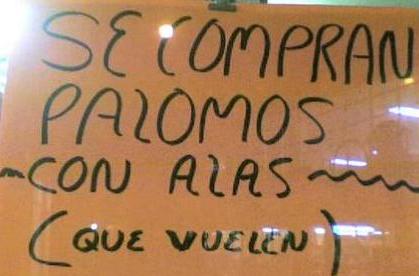 SE COMPRAN
PALOMOS
~CON ALAS~
(QUE VUELEN)